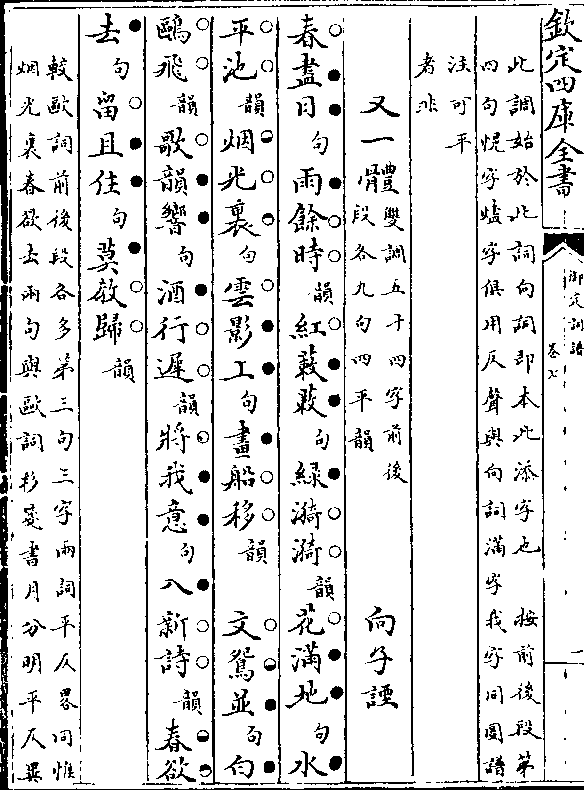 欽定四庫全書
御定詞譜
卷七
此調始於此詞向詞即本此添字也 按前後段第
四句恍字爐字俱用仄聲與向詞滿字我字同圖譜
注可平
者非
又一體雙調五十四字前後
段各九句四平韻 向子諲
春盡日句雨餘時韻紅蔌蔌句綠漪漪韻花滿地句水
平池韻烟光裏句雲影上句畫船移韻 文鴛並句白
鷗飛韻歌韻響句酒行遲韻將我意句入新詩韻春欲
去句留且住句莫敎歸韻
較歐詞前後段各多第三句三字兩詞平仄畧同惟
烟光裏春欲去兩句與歐詞杉窗書月分明平仄異